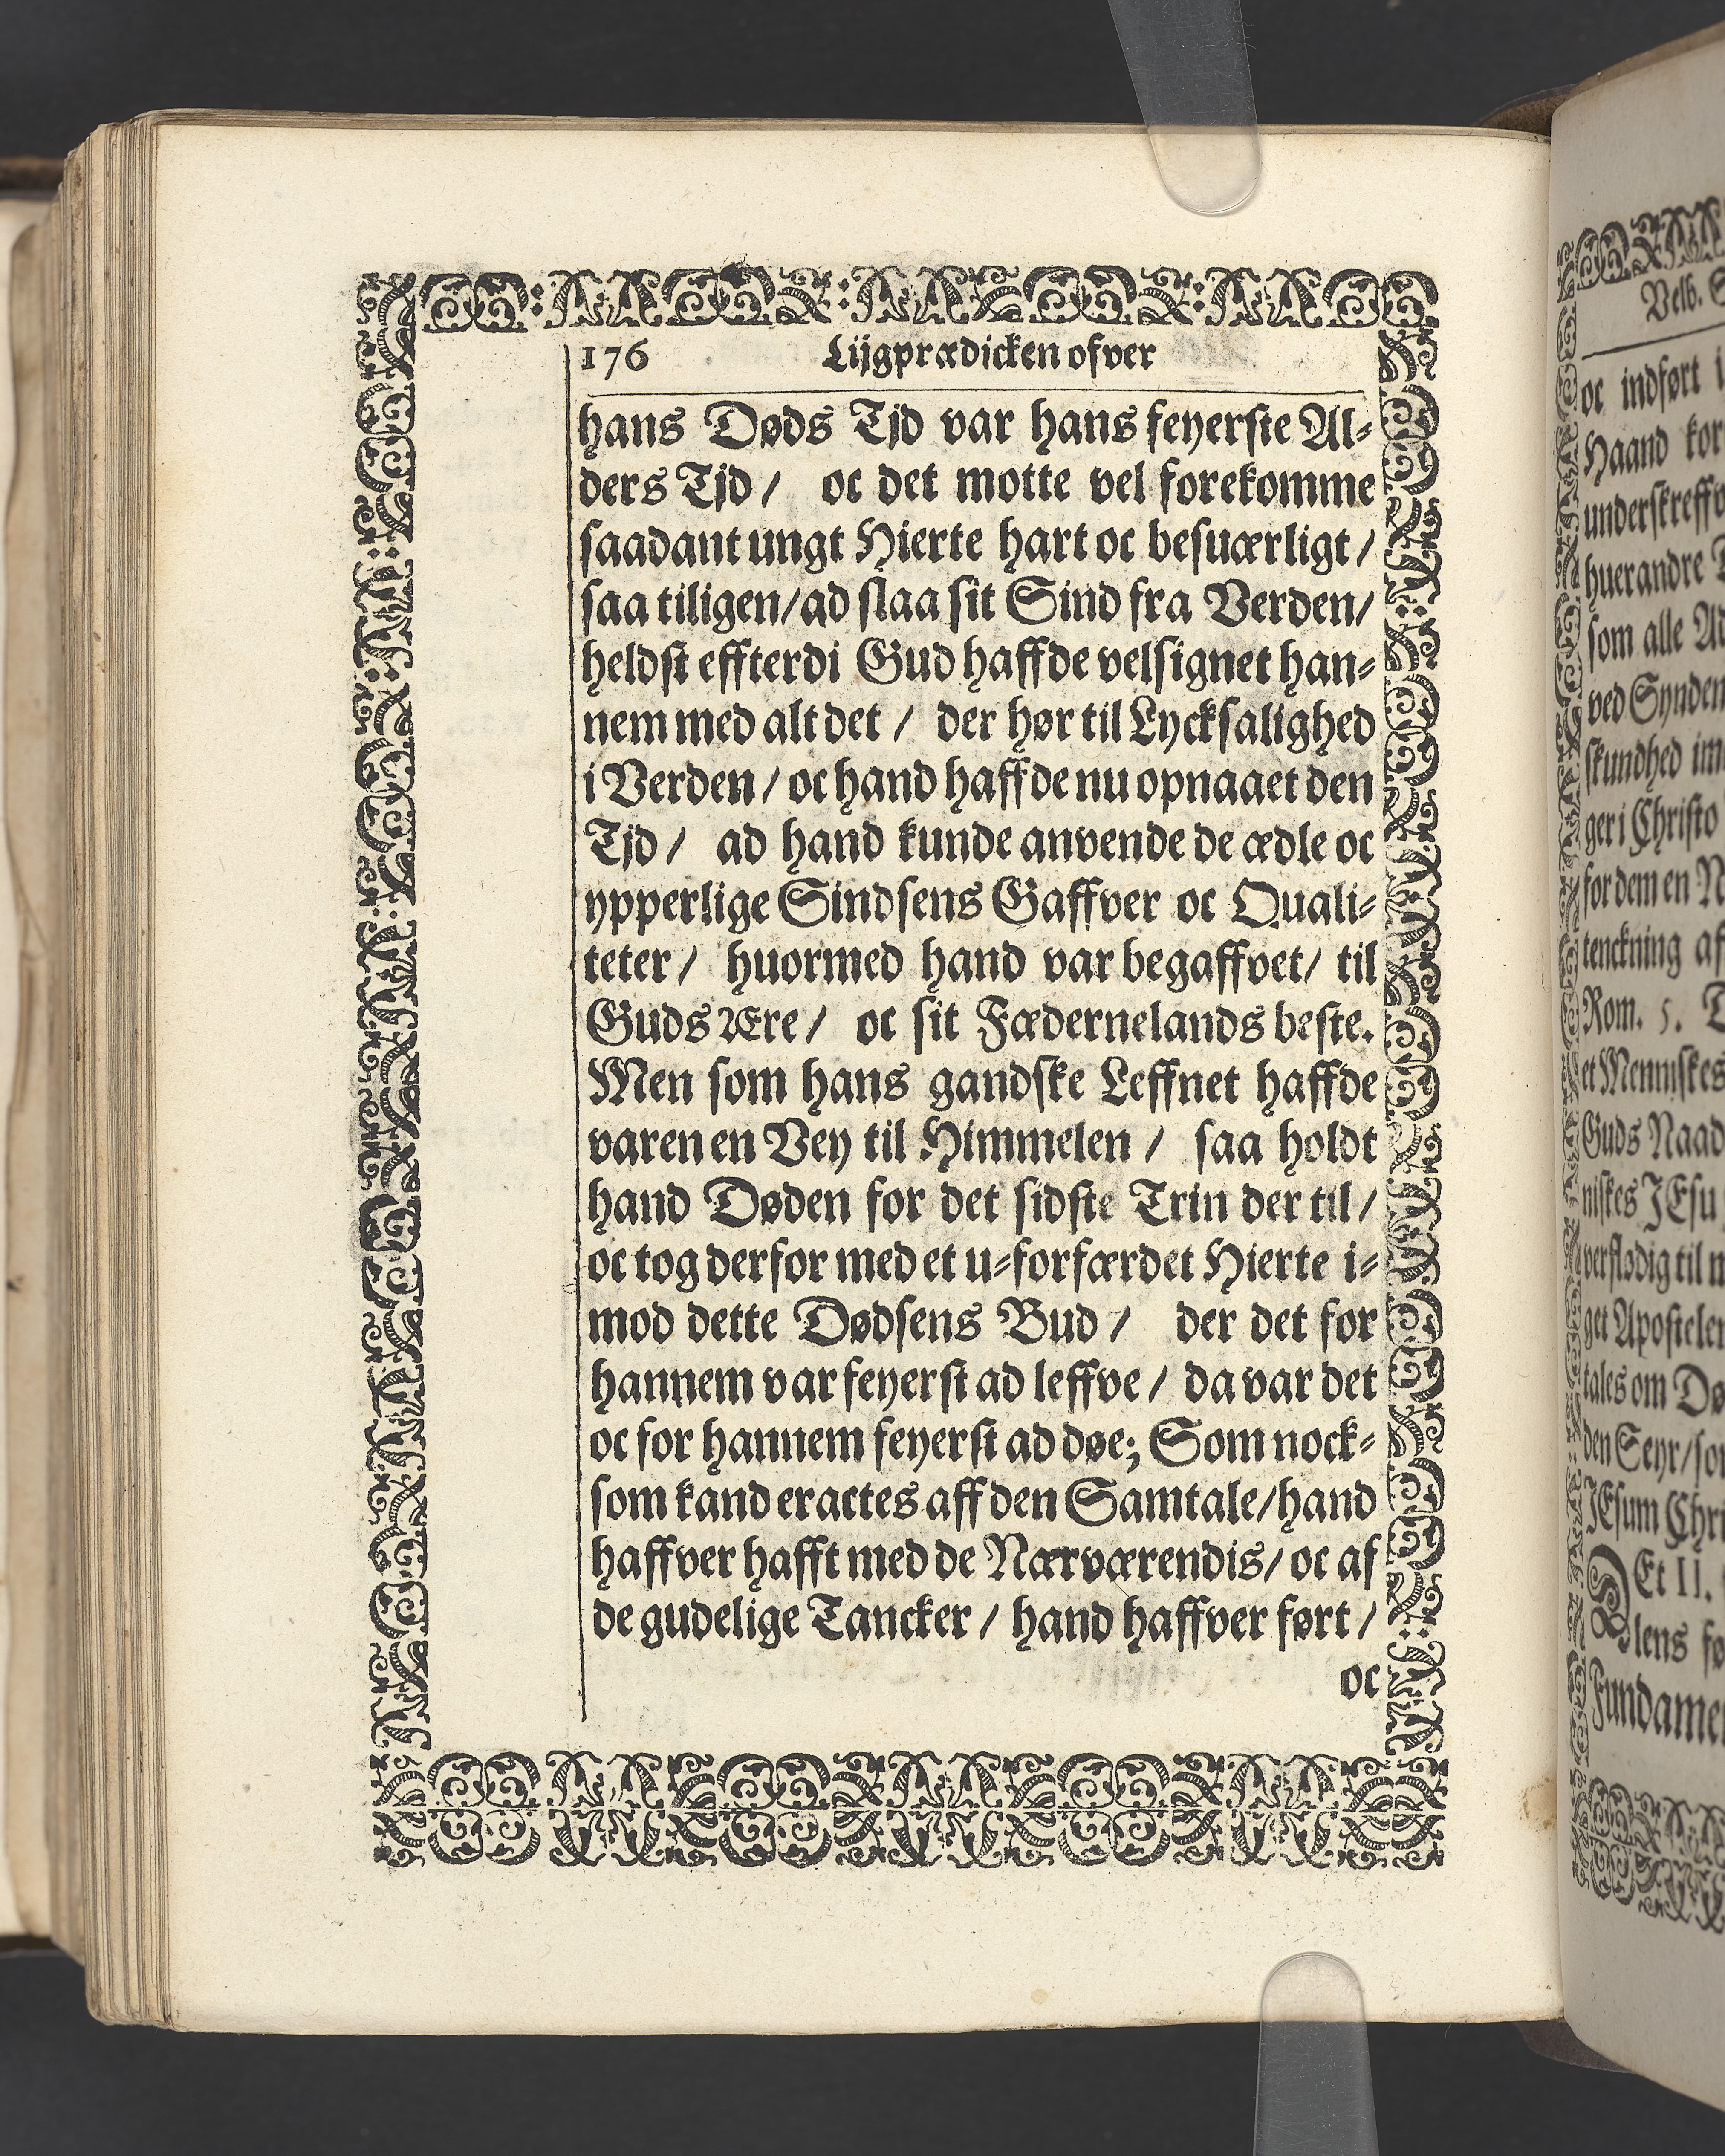 176 Lijgprædicken ofver
hans Døds Tjd var hans feyerste Al-
ders Tjd / oc det motte vel forekomme
saadant ungt Hierte hart oc besuærligt /
saa tiligen / ad slaa sit Sind fra Verden /
heldst effterdi Gud haffde velsignet han-
nem med alt det / der hør til Lycksalighed
i Verden / oc hand haffde nu opnaaet den
Tjd / ad hand kunde anvende de ædle oc
ypperlige Sindsens Gaffver oc Quali-
teter / huormed hand var begaffvet / til
Guds Ære / oc sit Fædernelands beste.
Men som hans gandske Leffnet haffde
varen en Vey til Himmelen / saa holdt
hand Døden for det sidste Trin der til /
oc tog derfor med et u-forfærdet Hierte i-
mod dette Dødsens Bud / der det for
hannem var feyerst ad leffve / da var det
oc for hannem feyerst ad døe; Som nock-
som kand eractes aff den Samtale / hand
haffver hafft med de Nærværendis / oc af
de gudelige Tancker / hand haffver ført /
oc
Velb.
oc indført
Haand
huerandre
som alle
ved Synden
skundhed
ger i Christo
for dem en
tenckning
Rom. 5.
et Menniskes
Guds Naad
niskes JEsu
verflødig til
get Apostelen
tales om
den Seyr /
JEsum
Et II.
lens